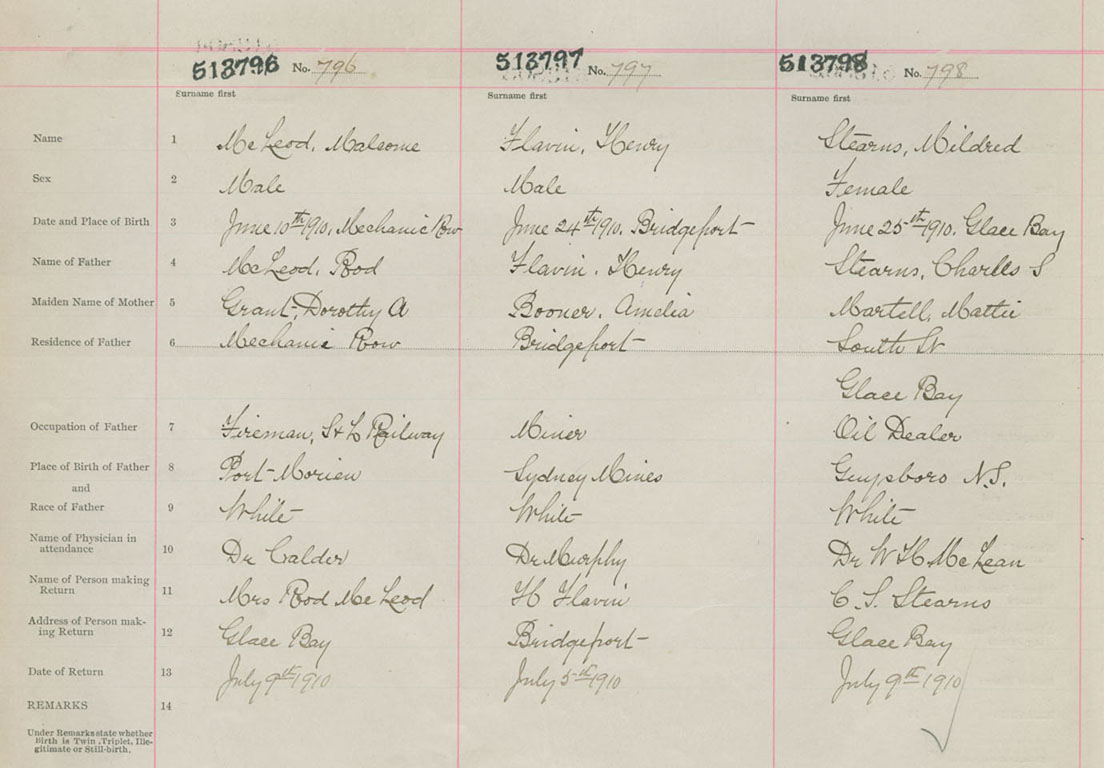 513796 No. 796 513797 No. 797 513798 No. 798
Surname first Surname first Surname first
Name 1 McLeod, Malsome Flavin, Henry Stearns, Mildred
Sex 2 Male Male Female
Date and Place of Birth 3 June 10th 1910, Mechanic Row June 24th 1910. Bridgeport June 25th 1910. Glace Bay
Name of Father 4 McLeod, Rod Flavin, Henry Stearns, Charles S
Maiden Name of Mother 5 Grant, Dorothy A Booner, Amelia Martell, Mattie
Residence of Father 6 Mechanic Row Bridgeport South St
Glace Bay
Occupation of Father 7 Fireman, S & L Railway Miner Oil Dealer
Place of Birth of Father 8 Port Morien Sydney Mines Guysboro N.S.
and
Race of Father 9 White White White
Name of Physician in
attendance 10 Dr Calder Dr Murphy Dr W H McLean
Name of Person making
Return 11 Mrs Rod McLeod H Flavin C. S. Stearns
Address of Person mak-
ing Return 12 Glace Bay Bridgeport Glace Bay
Date of Return 13 July 9th 1910 July 5th 1910 July 9th 1910
REMARKS 14
Under Remarks state whether
Birth is Twin, Triplet, Ille-
gitimate or Still-birth.